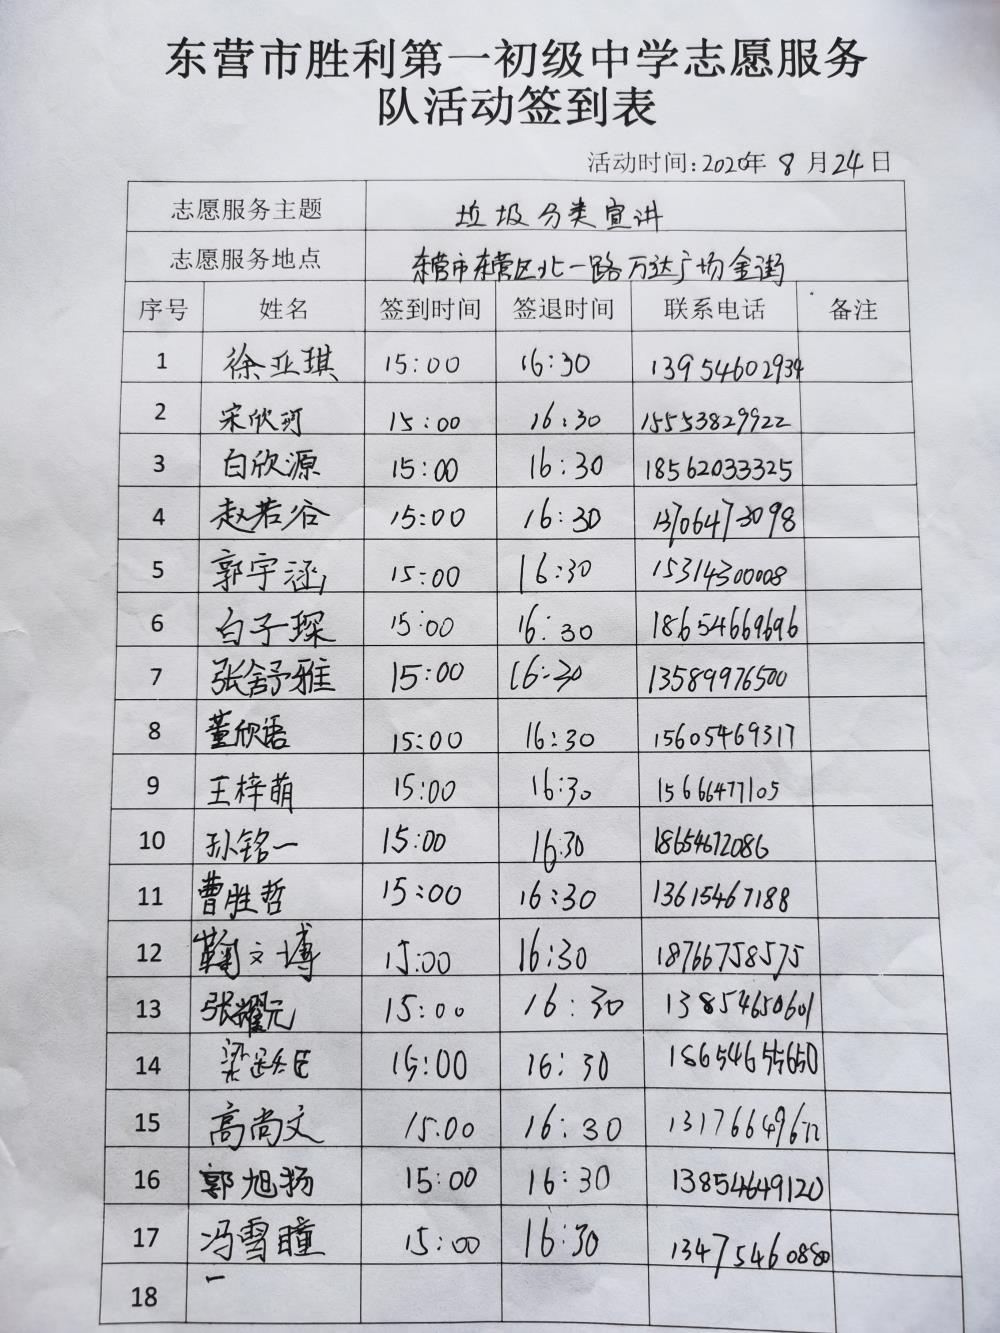 东营市胜利第一初级中学志愿服务
队活动签到表
活动时间:2020年 8 月 24 日
志愿服务主题 垃圾分类宣讲
志愿服务地点 东营市东营区北一路万达广场金街
序号 姓名 签到时间 签退时间 联系电话 备注
1 徐亚琪 15:00 16:30 13954602934
2 宋欣珂 15:00 16:30 15553829922
3 白欣源 15:00 16:30 18562033325
4 赵若谷 15:00 16:30 13706473098
5 郭宇涵 15:00 16:30 15314300008
6 白子琛 15:00 16:30 18654669696
7 张舒雅 15:00 16:30 13589976500
8 董欣语 15:00 16:30 15605469317
9 王梓萌 15:00 16:30 15666477105
10 孙铭一 15:00 16:30 18654672086
11 曹胜哲 15:00 16:30 13615467188
12 鞠文博 15:00 16:30 18766758575
13 张耀元 15:00 16:30 13854650601
14 梁 15:00 16:30 18654655650
15 高尚文 15:00 16:30 13176649672
16 郭旭扬 15:00 16:30 13854649120
17 冯雪瞳 15:00 16:30 13475460880
18